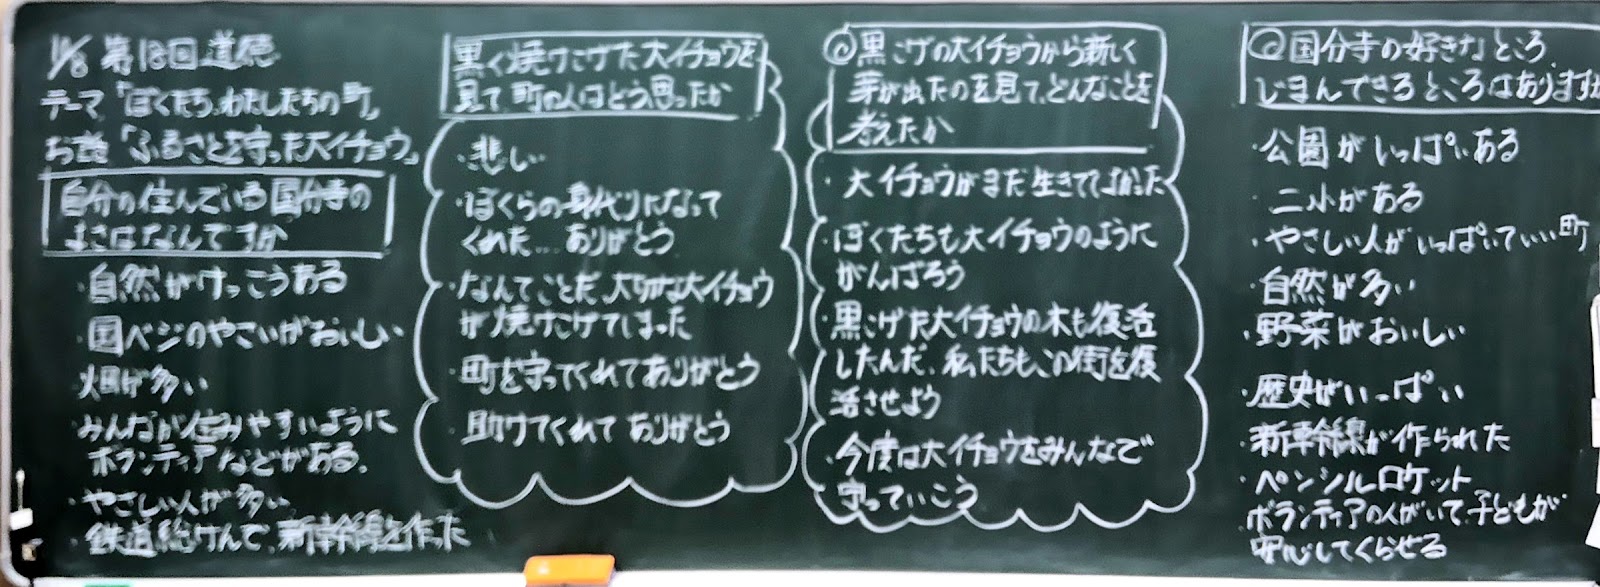 11/8 第18回道徳
テーマ「ぼくたち、わたしたちの町」
お話「ふるさとを守った大イチョウ」
自分の住んでいる国分寺の
よさはなんですか
・自然がけっこうある
・国ベジのやさいがおいしい
・畑が多い
・みんなが住みやすいように
ボランティアなどがある。
・やさしい人が多い
・鉄道総けんで、新幹線を作った
黒く焼けこげた大イチョウを
見て、町の人はどう思ったか
・悲しい
・ぼくらの身代りになって
くれた…ありがとう
・なんてことだ、大切な大イチョウ
が焼けこげてしまった
・町を守ってくれてありがとう
・助けてくれてありがとう
◎黒こげの大イチョウから新しく
芽が出たのを見て、どんなことを
考えたか
・大イチョウがまだ生きててよかった
・ぼくたちも大イチョウのように
がんばろう
・黒こげた大イチョウの木も復活
したんだ、私たちも、この街を復
活させよう
・今度は大イチョウをみんなで
守っていこう
◎国分寺の好きなところ、
じまんできるところはありますか
・公園がいっぱいある
・二小がある
・やさしい人がいっぱいていい町
・自然が多い
・野菜がおいしい
・歴史がいっぱい
・新幹線が作られた
・ペンシルロケット
・ボランティアの人がいて、子どもが
安心してくらせる